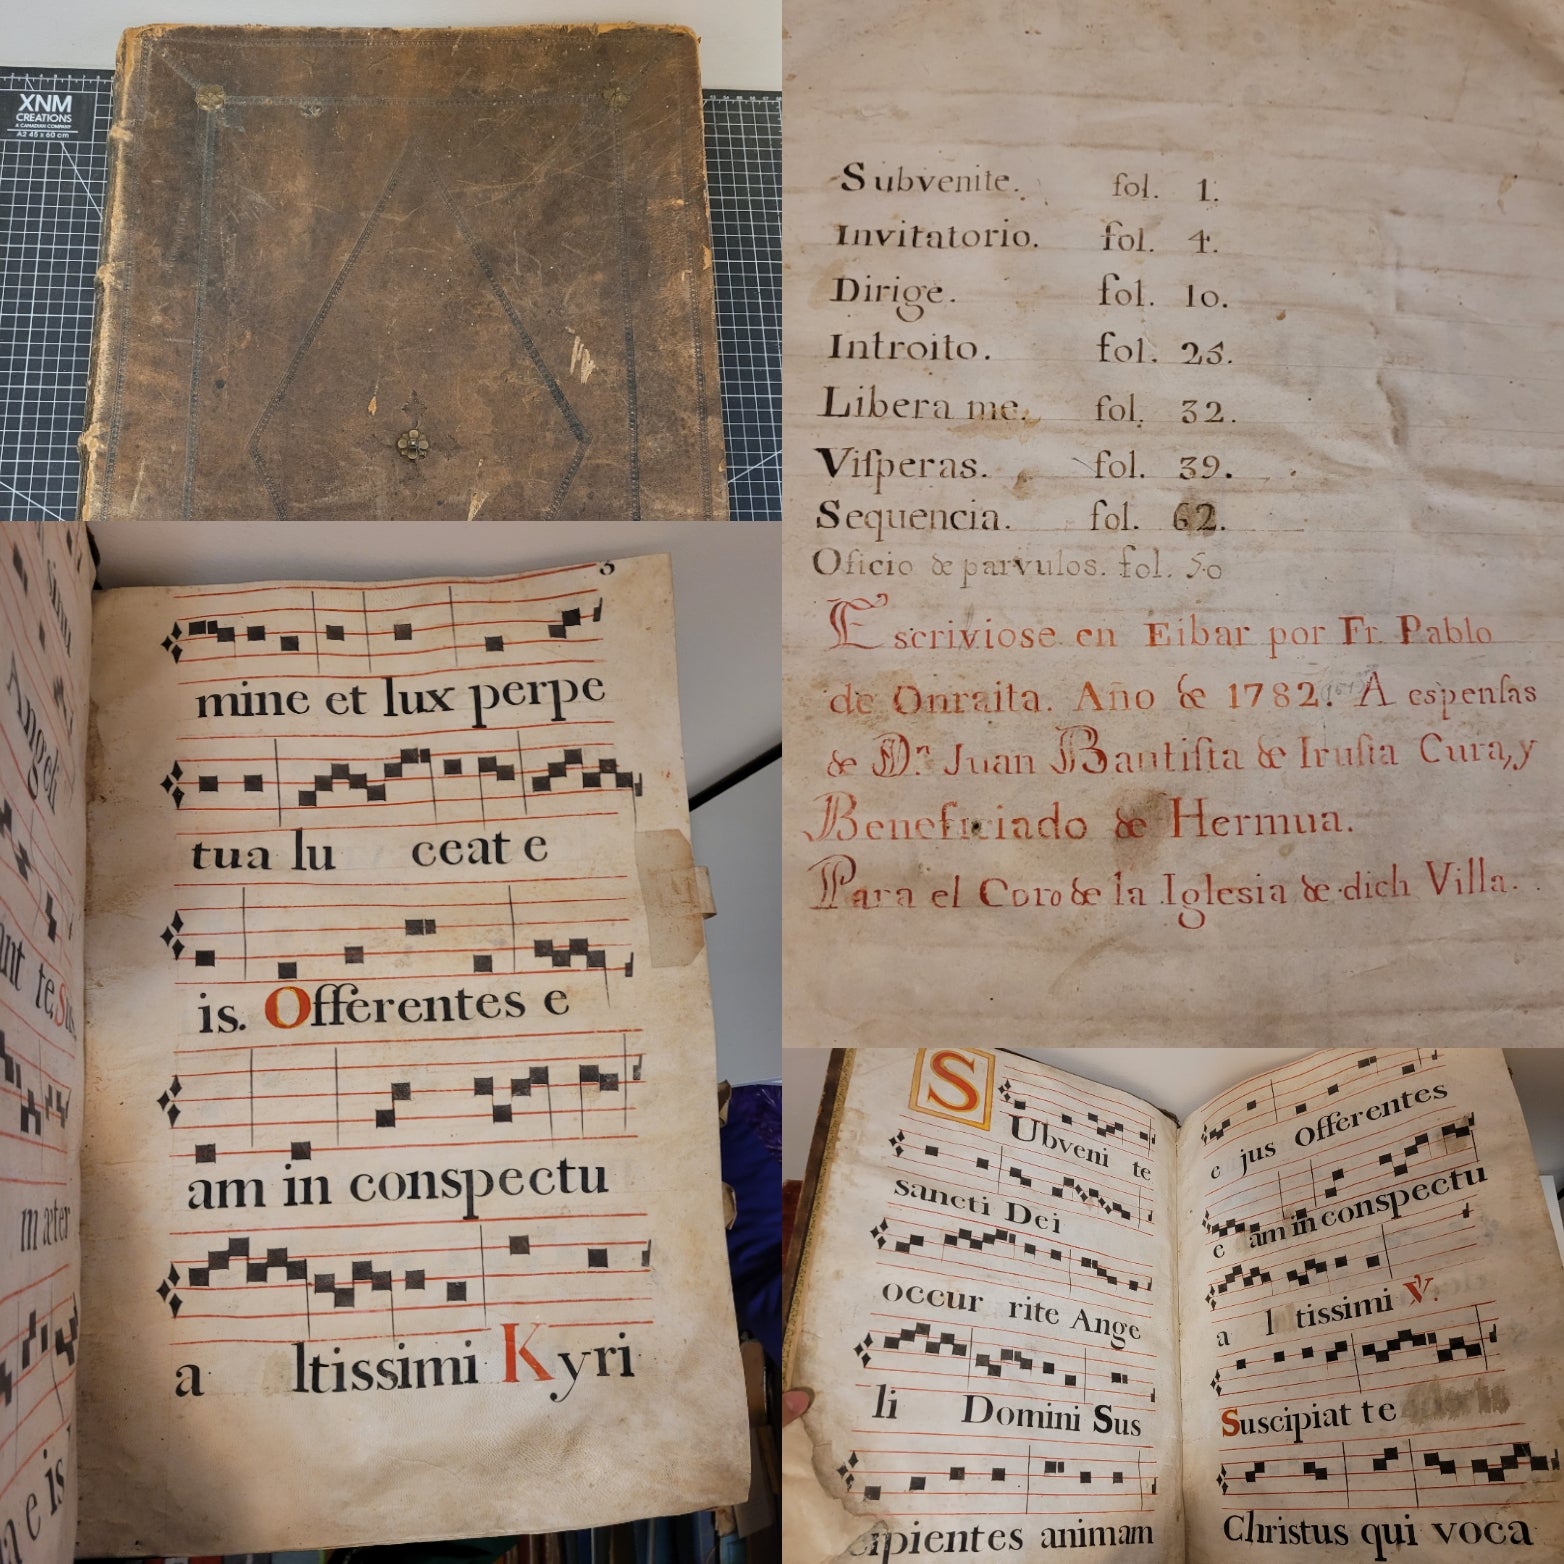 XNM
CREATIONS
A CANADIAN COMPANY
A2 45 x 60 cm
Subvenite. fol. 1.
Invitatorio. fol. 4.
Dirige. fol. 10.
Introito. fol. 25.
Libera me. fol. 32.
Viſperas. fol. 39.
Sequencia. fol. 62.
Oficio de parvulos. fol. 50
Escriviose en Eibar por Fr. Pablo
de Onraita. Año de 1782. A espenſas
de Dn. Juan Bautiſta de Iruſta Cura, y
Beneficiado de Hermua.
Para el Coro de la Iglesia de dich Villa.
3
mine et lux perpe
tua lu ceat e
is. Offerentes e
am in conspectu
a ltissimi Kyri
Angeli
ant te. Sus
m æter
e is
SUbveni te
sancti Dei
occur rite Ange
li Domini Sus
cipientes animam
e jus Offerentes
e am in conspectu
a l tissimi V.
Suscipiat te
Christus qui voca